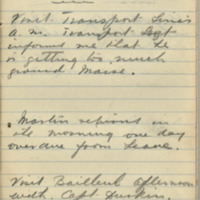 Visit Transport Lines
A. M. Transport Sgt
informed me that he
is getting too much
ground Maise.
Martin rejoins in
the morning one day
overdue from Leave.
Visit Bailleul afternoon
with Capt Durkin.